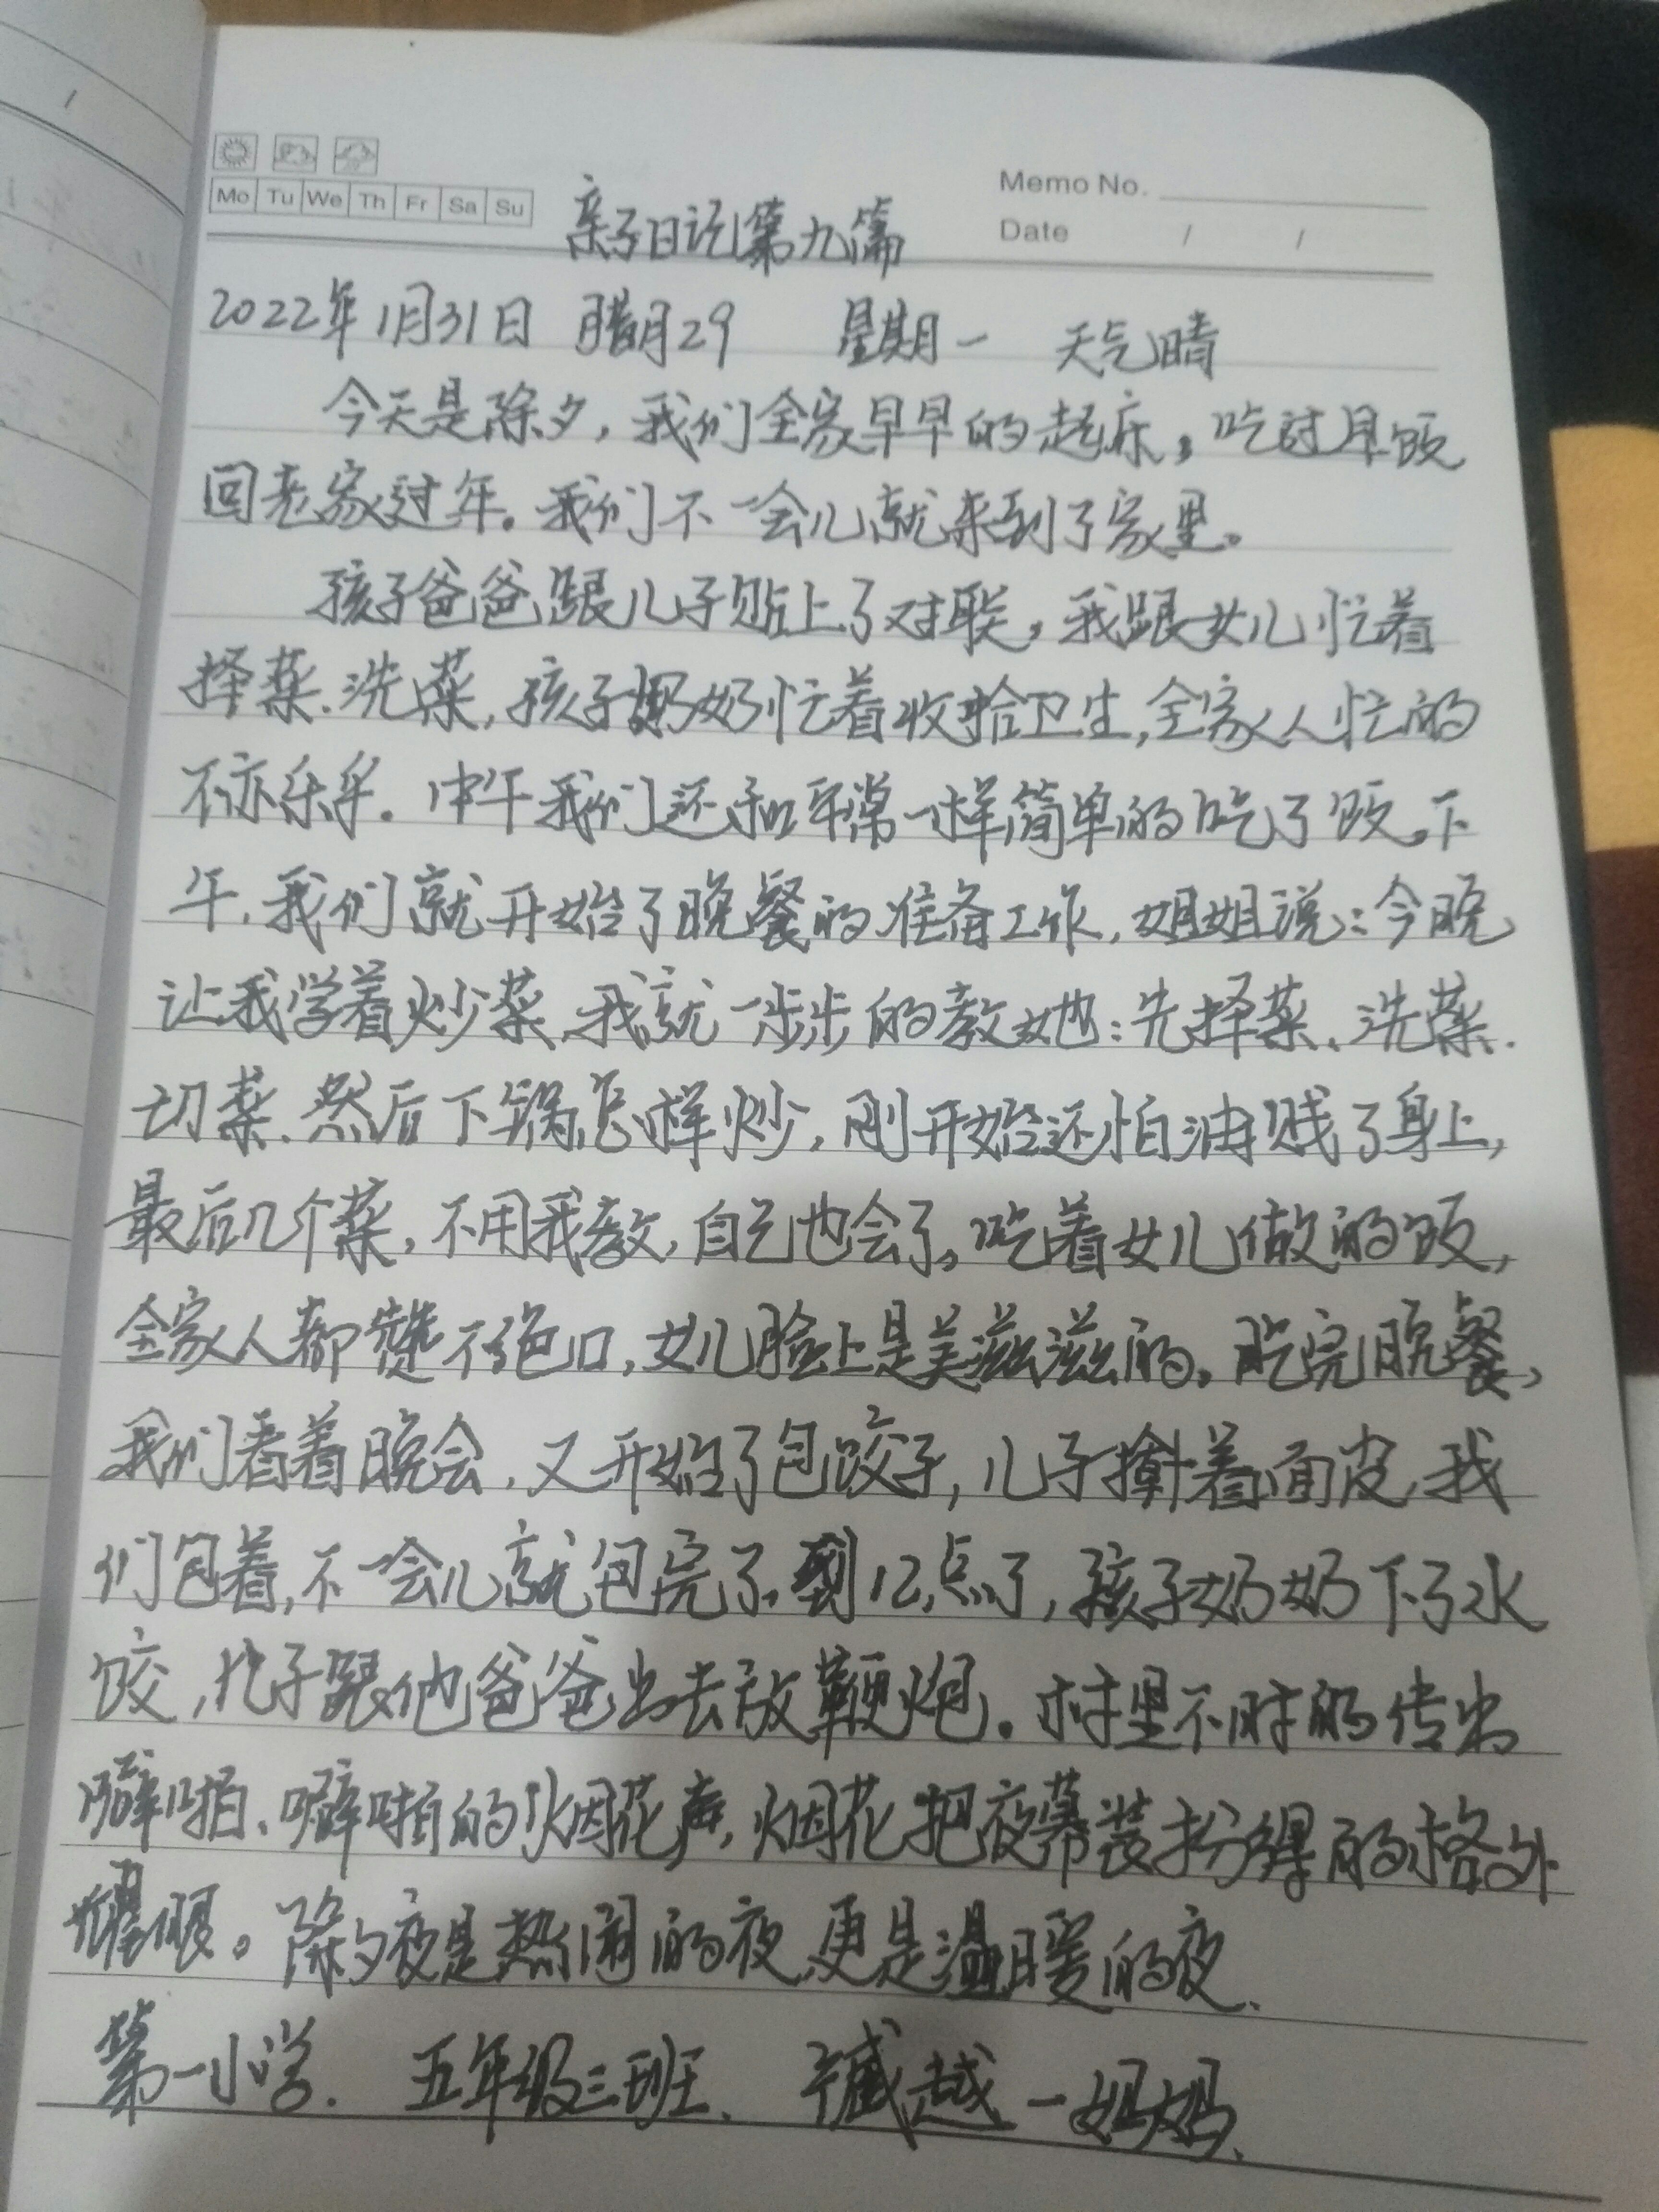 Mo Tu We Th Fr Sa Su
Memo No.
Date / /
亲子日记第九篇
2022年1月31日 腊月29 星期一 天气晴
今天是除夕，我们全家早早的起床，吃过早饭
回老家过年。我们不一会儿就来到了家里。
孩子爸爸跟儿子贴上了对联，我跟女儿忙着
择菜、洗菜，孩子奶奶忙着收拾卫生，全家人忙的
不亦乐乎。中午我们还和平常一样简单的吃了饭。下
午，我们就开始了晚餐的准备工作，姐姐说：今晚
让我学着炒菜，我就一步步的教她：先择菜、洗菜、
切菜、然后下锅怎样炒，刚开始还怕油贱了身上，
最后几个菜，不用我教，自己也会了。吃着女儿做的饭，
全家人都赞不绝口，女儿脸上是美滋滋的。吃完晚餐，
我们看着晚会，又开始了包饺子，儿子擀着面皮，我
们包着，不一会儿就包完了。到12点了，孩子奶奶下了水
饺，儿子跟他爸爸出去放鞭炮。村里不时的传出
噼啪、噼啪的烟花声，烟花把夜幕装扮得的格外
耀眼。除夕夜是热闹的夜，更是温暖的夜。
第一小学. 五年级三班. 臧越一妈妈.